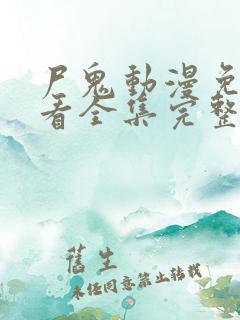 尸鬼動漫免
看全集完整
舊生
未經同意禁止轉載